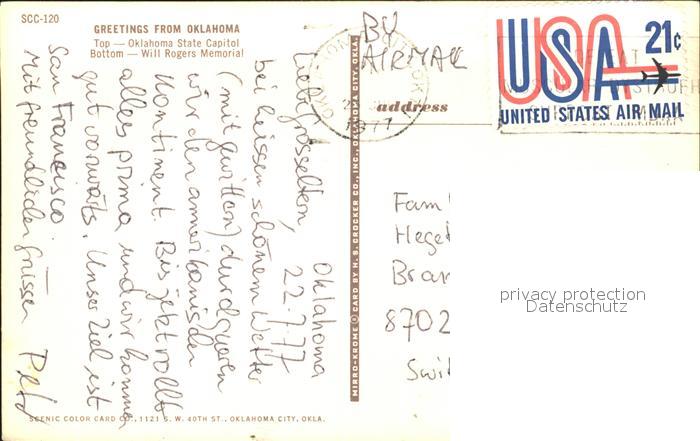 SCC-120
GREETINGS FROM OKLAHOMA
Top — Oklahoma State Capitol
Bottom — Will Rogers Memorial
BY
AIRMAIL
USA 21c
UNITED STATES AIR MAIL
address
1977
Oklahoma
22.7.77
Liebe Grosseltern,
bei heissen schönem Wetter
(mit gewittern) durchqueren
wir den amerikanischen
Kontinent. Bis jetzt rollt
alles prima und wir kommen
gut vorwärts. Unser Ziel ist
San Francisco.
Mit freundlichen Grüssen
MIRRO-KROME ® CARD BY H. S. CROCKER CO., INC., OKLAHOMA CITY, OKLA.
Fam
Heget
Bran
8702
Swit
privacy protection
Datenschutz
SCENIC COLOR CARD CO., 1121 S. W. 40TH ST., OKLAHOMA CITY, OKLA.